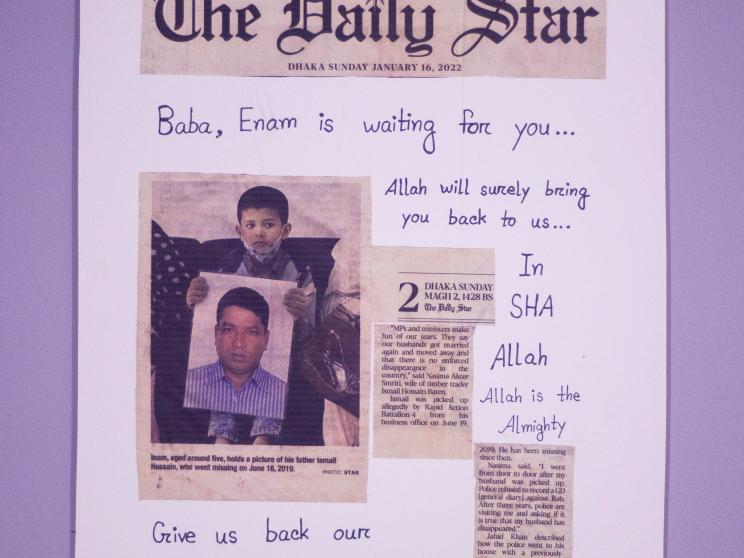 The Daily Star
DHAKA SUNDAY JANUARY 16, 2022
Baba, Enam is waiting for you...
Allah will surely bring
you back to us...
In
SHA
Allah
Allah is the
Almighty
2
DHAKA SUNDAY
MAGH 2, 1428 BS
The Daily Star
"MPs and ministers make
fun of our tears. They say
our husbands got married
again and moved away and
that there is no enforced
disappearance in the
country," said Nasima Akter
Smriti, wife of timber trader
Ismail Hossain Baten.
Ismail was picked up
allegedly by Rapid Action
Battalion-4 from his
business office on June 19,
2019. He has been missing
since then.
Nasima said, "I went
from door to door after my
husband was picked up.
Police refused to record a GD
[general diary] against Rab.
After three years, police are
visiting me and asking if it
is true that my husband has
disappeared."
Jahid Khan described
how the police went to his
house with a previously
Inam, aged around five, holds a picture of his father Ismail
Hossain, who went missing on June 16, 2019.
PHOTO: STAR
Give us back our